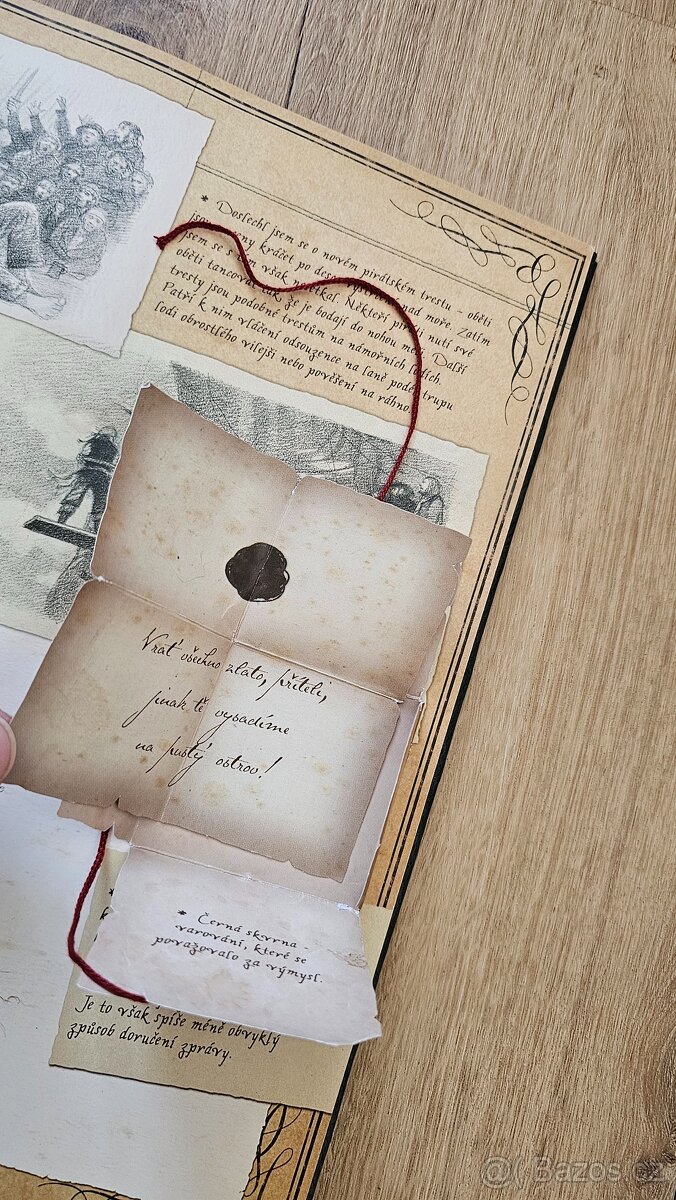 * Doslechl jsem se o novém pirátském trestu - oběti
kráčet po nad moře. Zatím
jsem se s tím však Někteří piráti nutí své
oběti tancovat že je bodají do nohou Další
tresty jsou podobné trestům na námořních lodích.
Patří k nim vláčení odsouzence na laně podél trupu
lodi obrostlého vilejši nebo pověšení na ráhno.
Vrať všechno zlato, příteli,
jinak tě vysadíme
na pustý ostrov!
* Černá skvrna -
varování, které se
považovalo za výmysl.
Je to však spíše méně obvyklý
způsob doručení zprávy.
@( Bazoš.cz